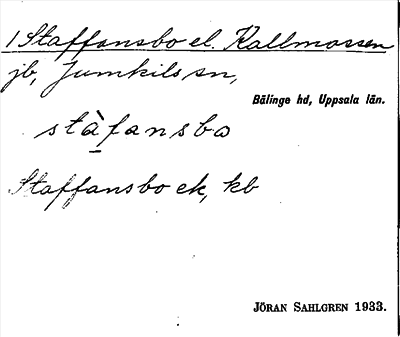 1 Staffansbo el. Kallmossen
jb, Jumkils sn,
Bälinge hd, Uppsala län.
stàfansbo
Staffansbo ek, kb
JÖRAN SAHLGREN 1933.